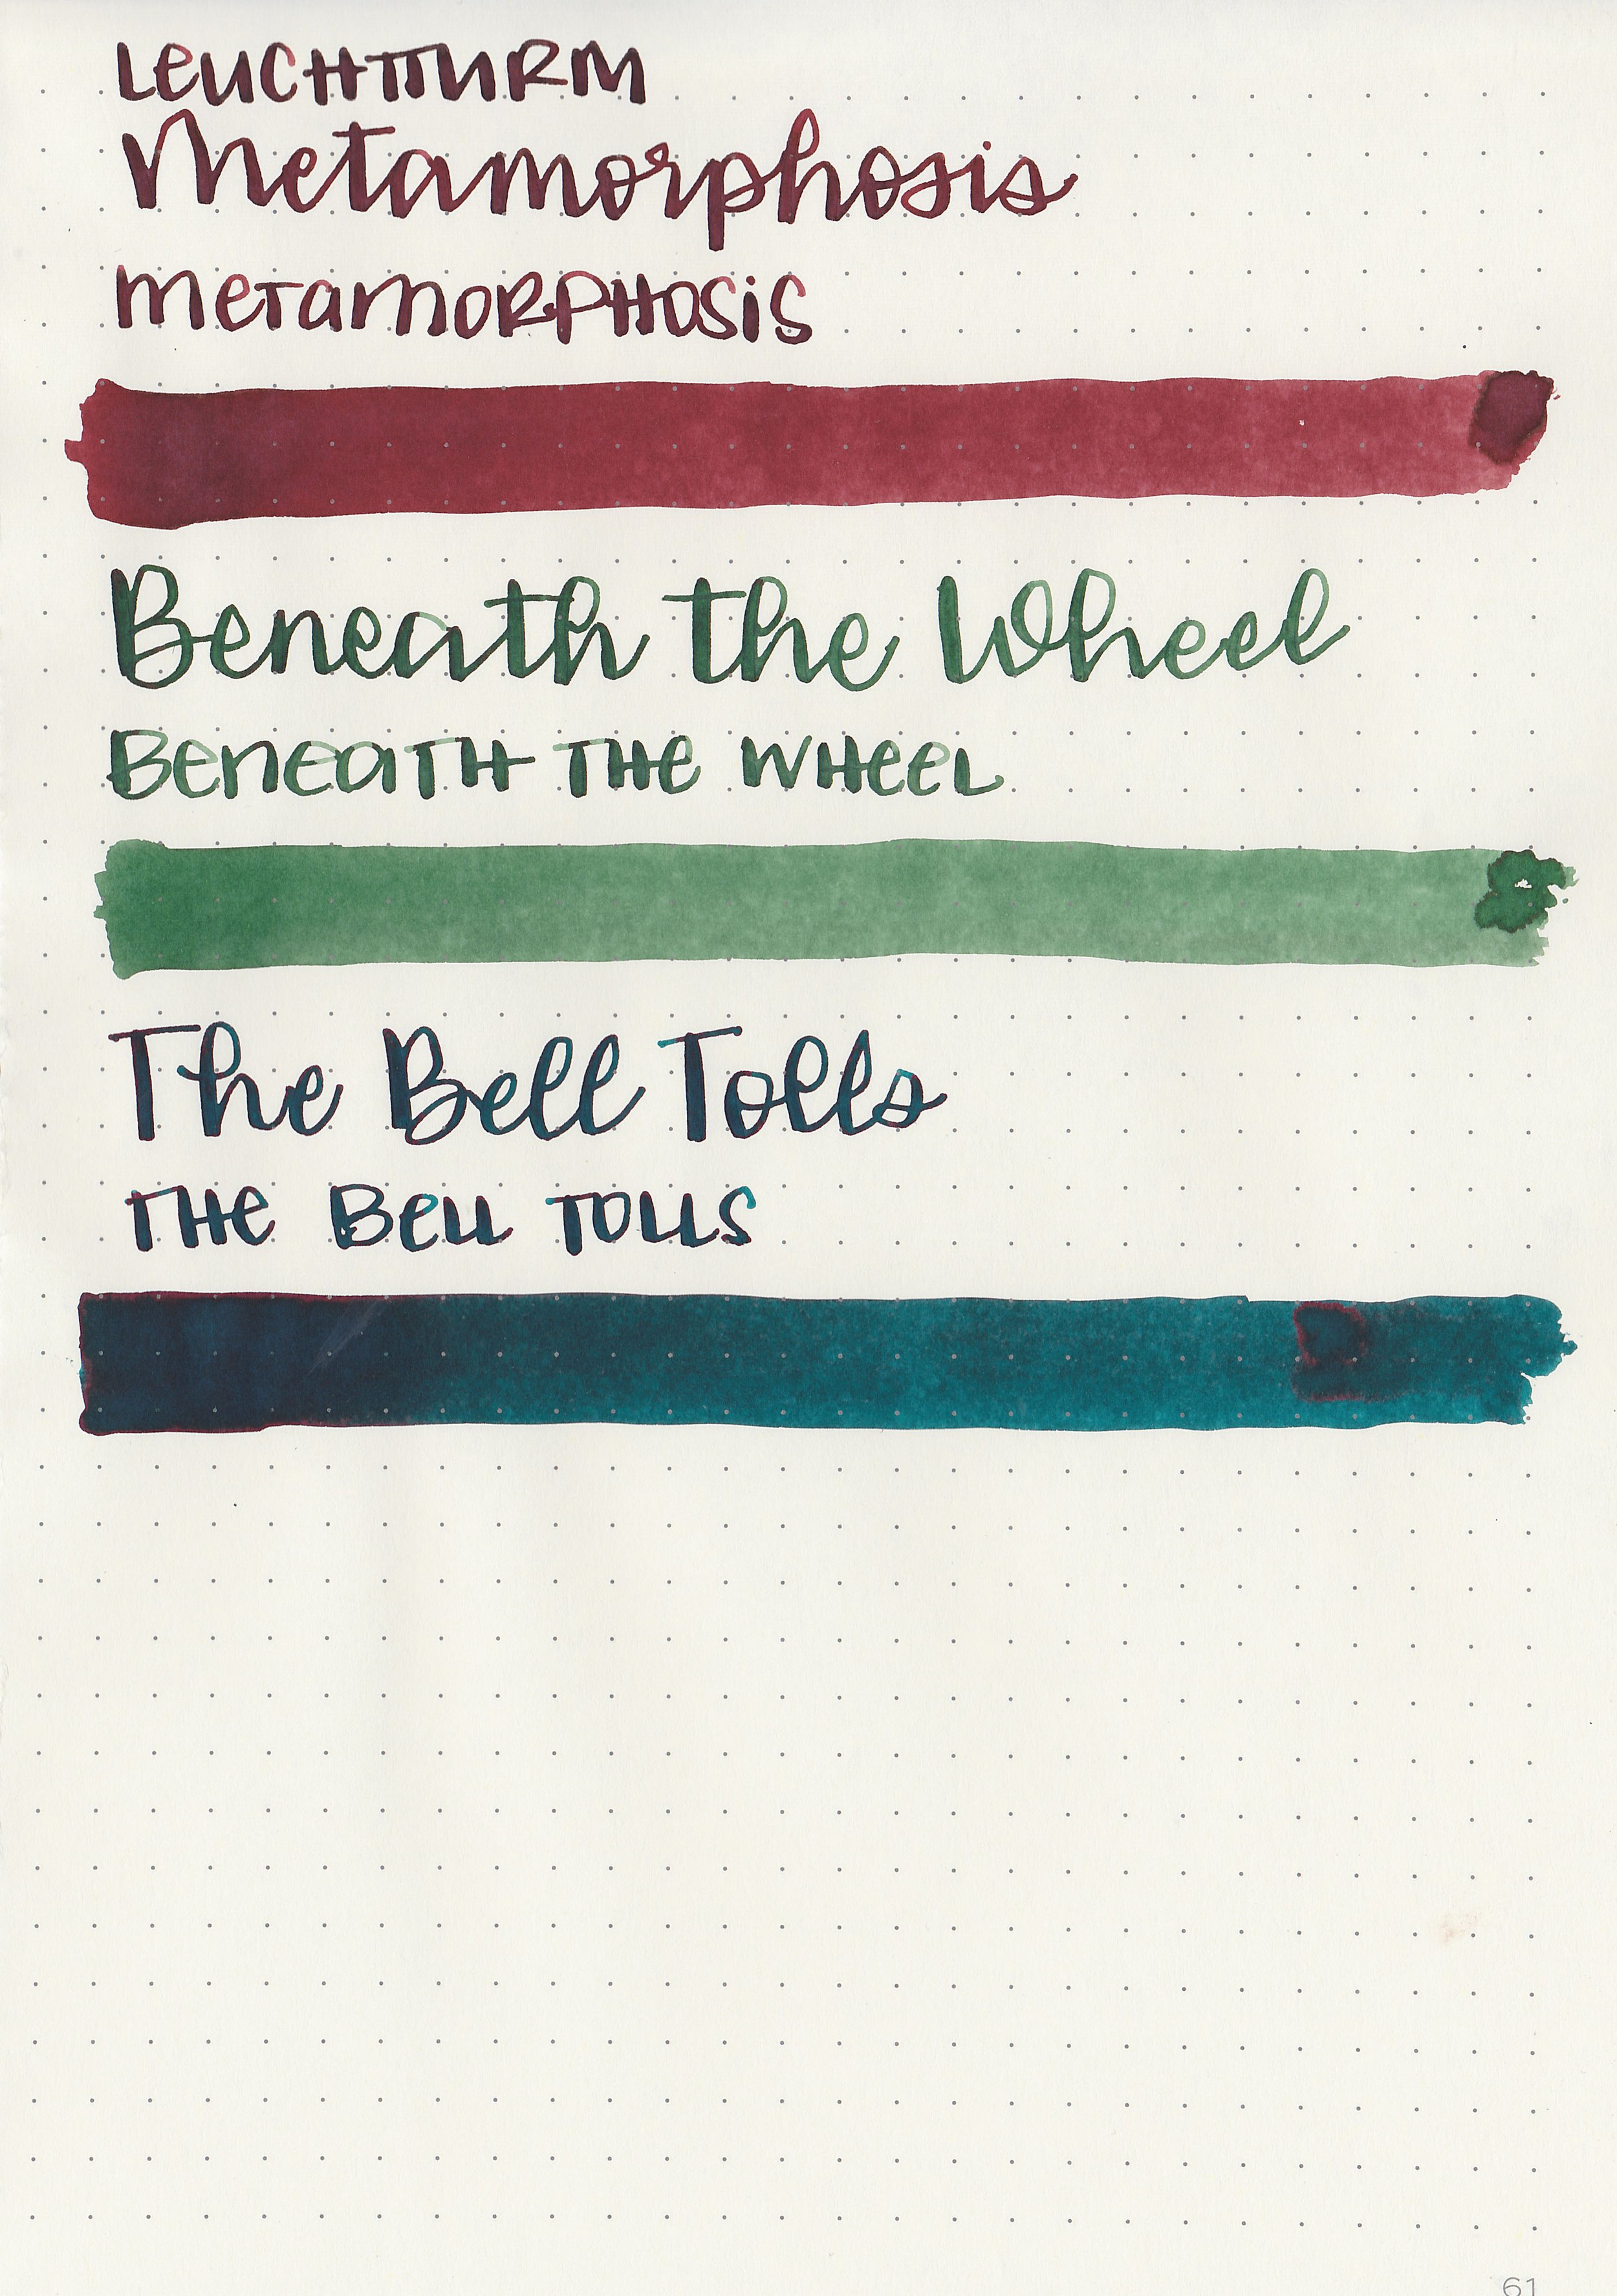 LEUCHTTURM
Metamorphosis
METAMORPHOSIS
Beneath the Wheel
BENEATH THE WHEEL
The Bell Tolls
THE BELL TOLLS
61